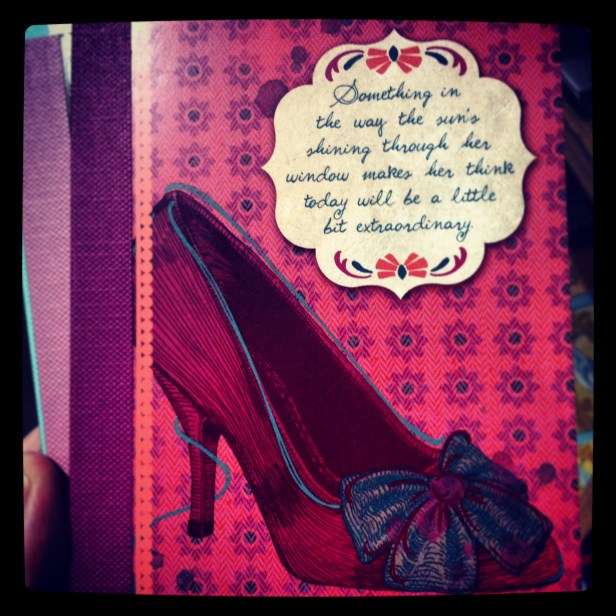 Something in
the way the sun's
shining through her
window makes her think
today will be a little
bit extraordinary.